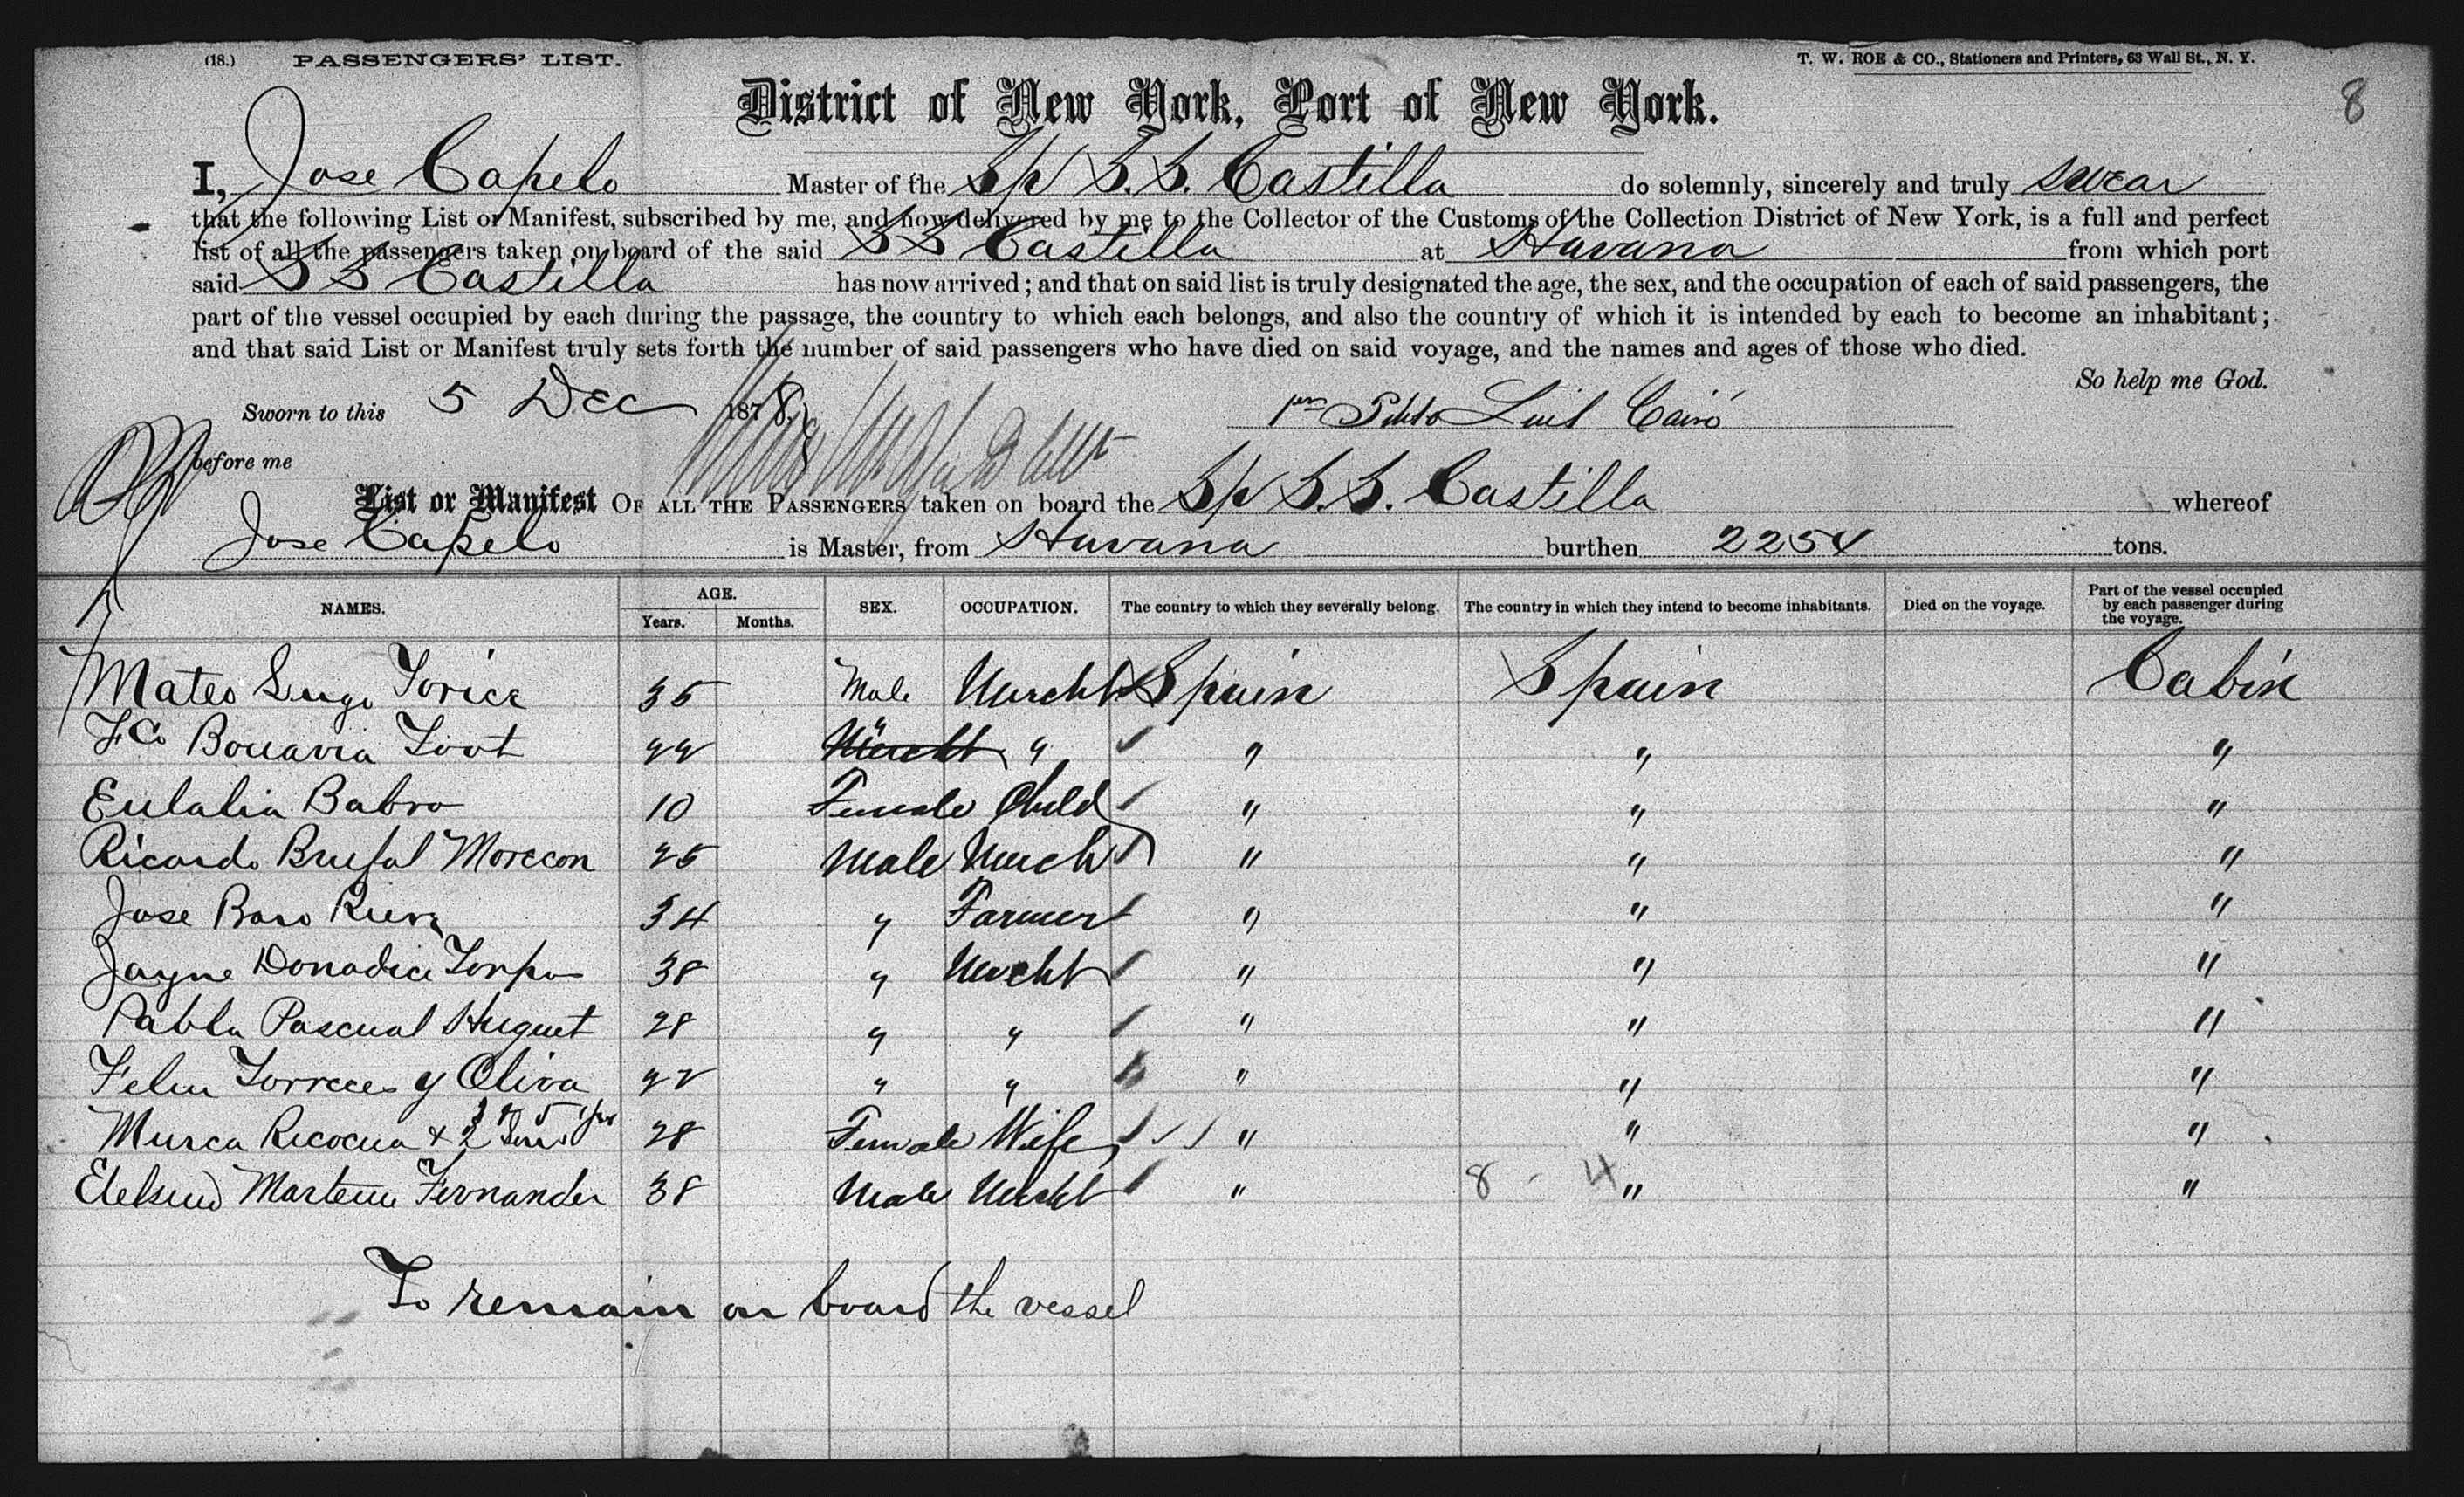 (18.) PASSENGERS' LIST.
T. W. ROE & CO., Stationers and Printers, 63 Wall St., N. Y.
8
District of New York, Port of New York.
I, Jose Capelo Master of the Sp S.S. Castilla do solemnly, sincerely and truly swear
that the following List or Manifest, subscribed by me, and now delivered by me to the Collector of the Customs of the Collection District of New York, is a full and perfect
list of all the passengers taken on board of the said S S Castilla at Havana from which port
said S S Castilla has now arrived; and that on said list is truly designated the age, the sex, and the occupation of each of said passengers, the
part of the vessel occupied by each during the passage, the country to which each belongs, and also the country of which it is intended by each to become an inhabitant;
and that said List or Manifest truly sets forth the number of said passengers who have died on said voyage, and the names and ages of those who died.
So help me God.
Sworn to this 5 Dec 1878 Luis Cairó
before me
List or Manifest OF ALL THE PASSENGERS taken on board the Sp S.S. Castilla whereof
Jose Capelo is Master, from Havana burthen 2254 tons.
NAMES. AGE. SEX. OCCUPATION. The country to which they severally belong. The country in which they intend to become inhabitants. Died on the voyage. Part of the vessel occupied by each passenger during the voyage.
Years. Months.
Mateo 35 Male Mercht Spain Spain Cabin
Fco 44 " " " " "
Eulalia Babro 10 Female Child " " "
Ricardo Brufal Morecon 25 Male Merch " " "
Jose 34 " Farmer " " "
Jayne 38 " Mercht " " "
Pablo Pascual Huguet 28 " " " " "
y Oliva 42 " " " " "
& 2 28 Female Wife " " "
Fernander 38 Male Mercht " 8 - 4 " "
To remain on board the vessel